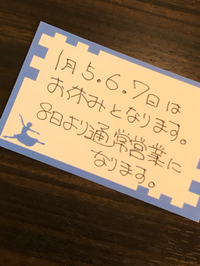 1月5.6.7日は
お休みとなります。
8日より通常営業に
なります。